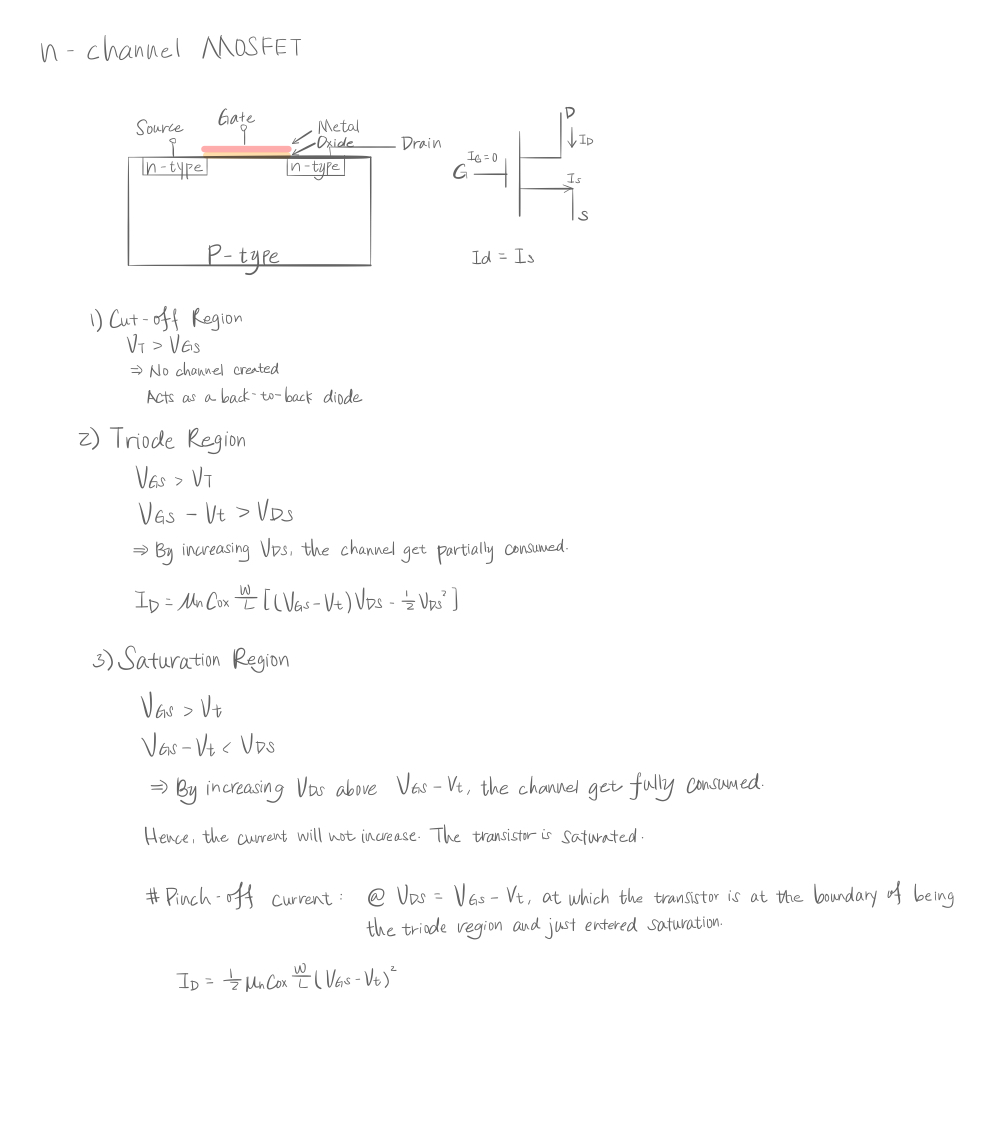 n - channel MOSFET
Source
Gate
Metal
Oxide
Drain
n-type
n-type
P-type
D
I_D
I_G=0
G
I_s
S
Id = Is
1) Cut-off Region
V_T > V_GS
⇒ No channel created
Acts as a back-to-back diode
2) Triode Region
V_GS > V_T
V_GS - Vt > V_DS
⇒ By increasing V_DS, the channel get partially consumed.
I_D = μn Cox W/L [(V_GS - Vt) V_DS - 1/2 V_DS²]
3) Saturation Region
V_GS > Vt
V_GS - Vt < V_DS
⇒ By increasing V_DS above V_GS - Vt, the channel get fully consumed.
Hence, the current will not increase. The transistor is saturated.
# Pinch-off current : @ V_DS = V_GS - Vt, at which the transistor is at the boundary of being
the triode region and just entered saturation.
I_D = 1/2 μn Cox W/L (V_GS - Vt)²